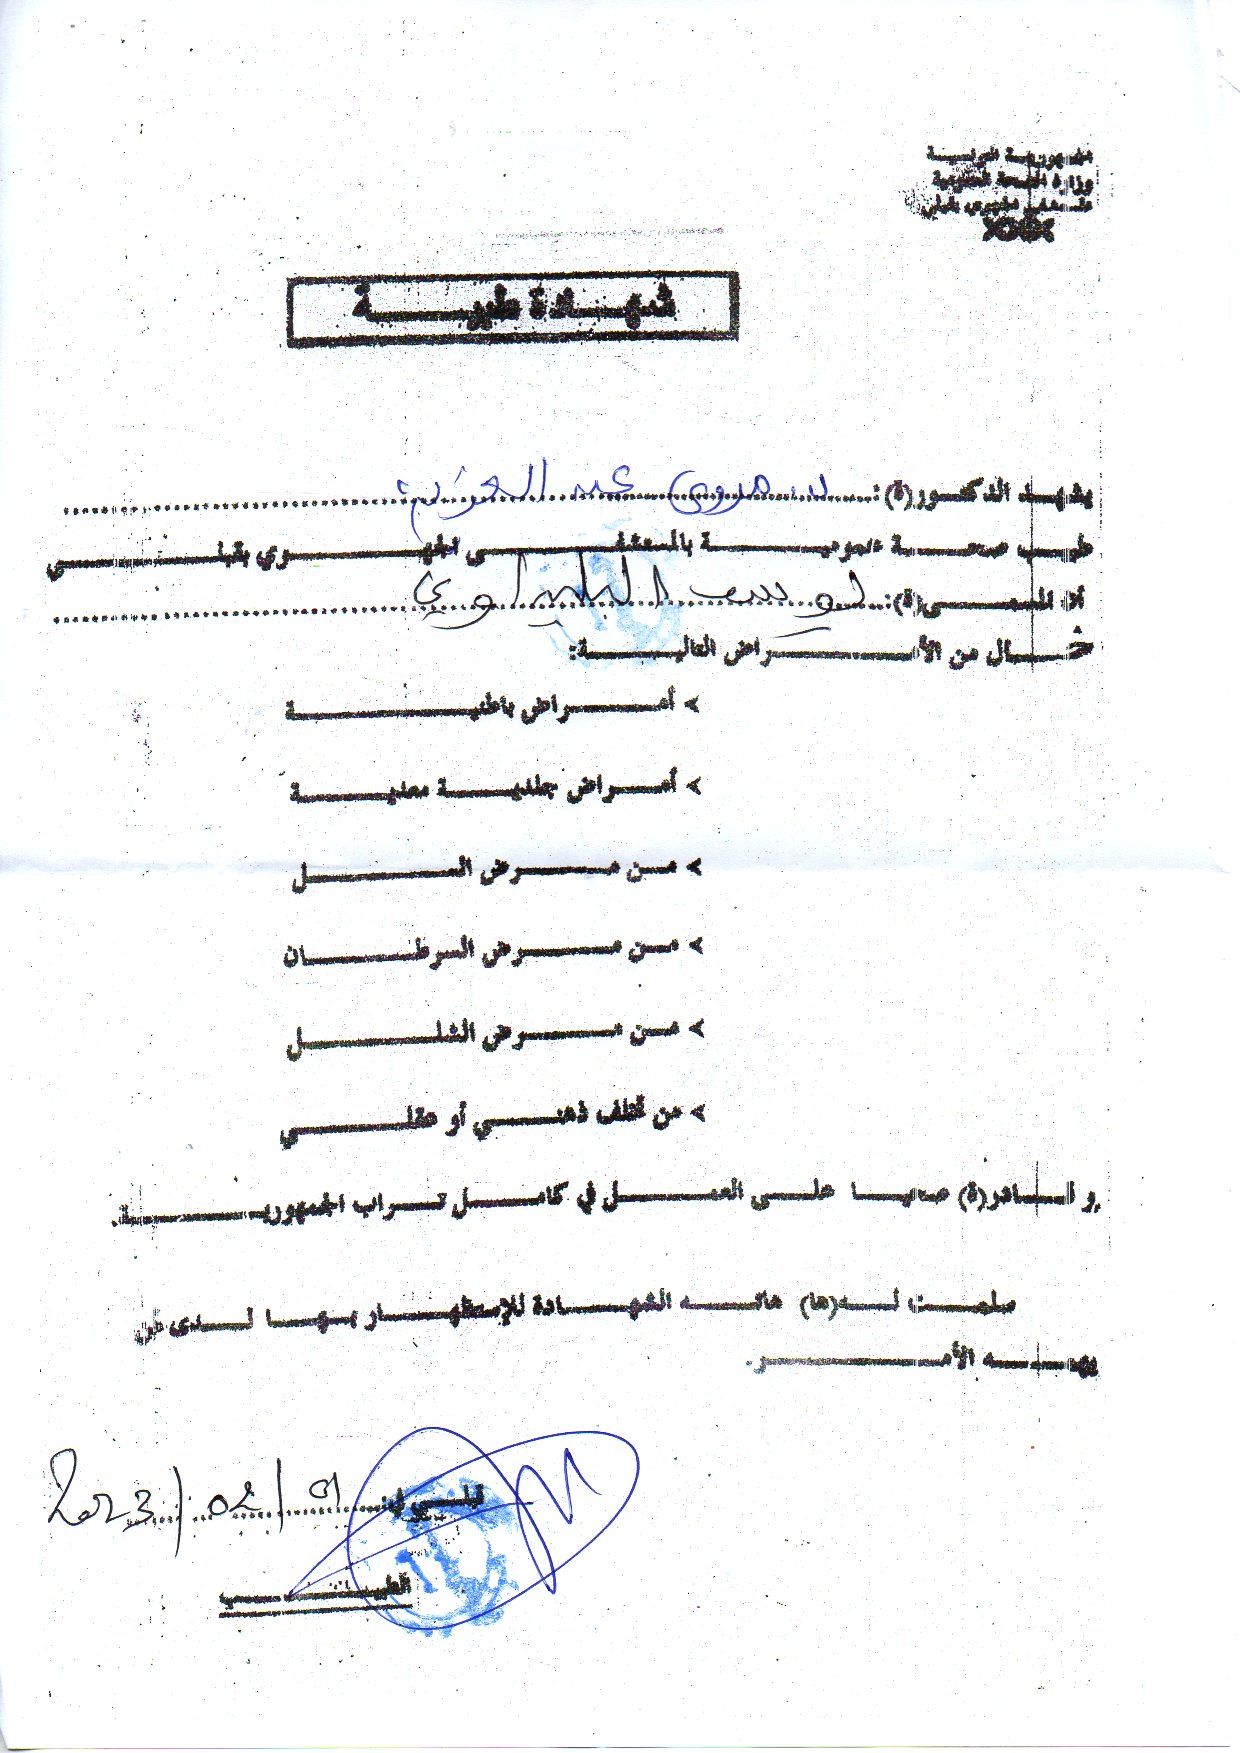 الجمهورية التونسية
وزارة الصحة العمومية
المستشفى الجهوي بقبلي
شهادة طبية
يشهد الدكتور(ة): عبد العزيز
طبيب صحة عمومية بالمستشفى الجهوي بقبلي
أن المسمى(ة): البليداوي
خال من الأمراض التالية:
> أمراض باطنية
> أمراض جلدية معدية
> من مرض السل
> من مرض السرطان
> من مرض الشلل
> من تخلف ذهني أو عقلي
و قادر(ة) صحيا على العمل في كامل تراب الجمهورية.
سلمت له(ها) هاته الشهادة للإستظهار بها لدى من
يهمه الأمر.
قبلي في: 01/02/2023
الطبيب